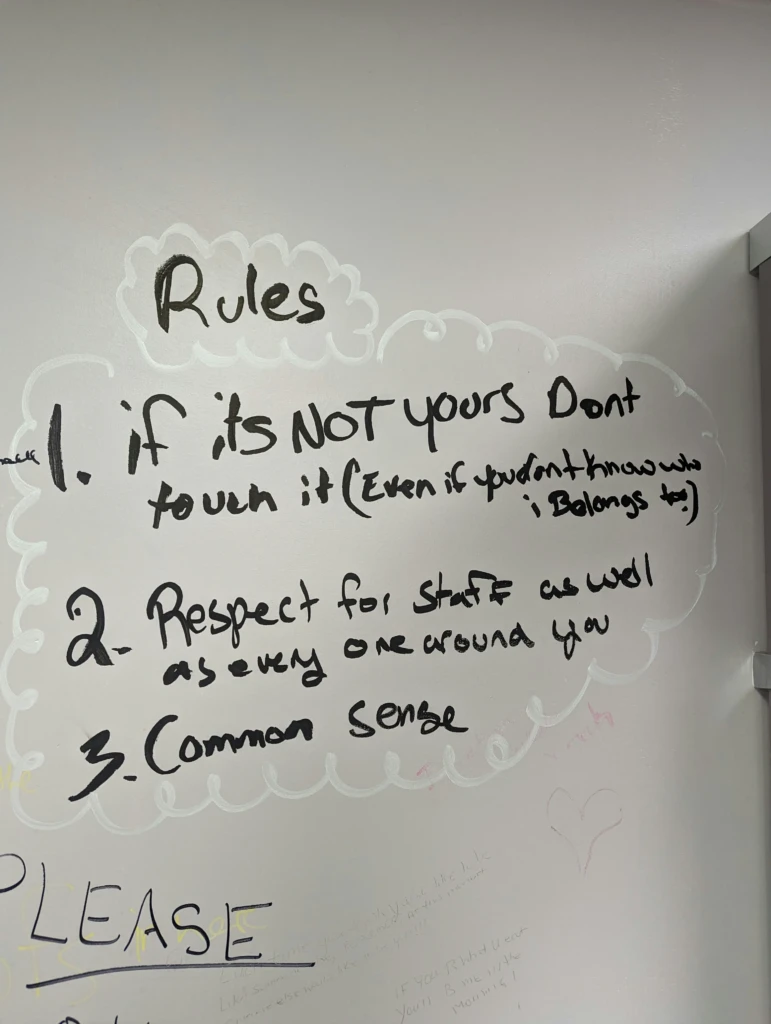 Rules
1. if its NOT yours Dont
touch it (Even if you dont know who
i Belongs to!)
2. Respect for staff as well
as every one around you
3. Common Sense
PLEASE
IF YOU
You'll
MORNING!